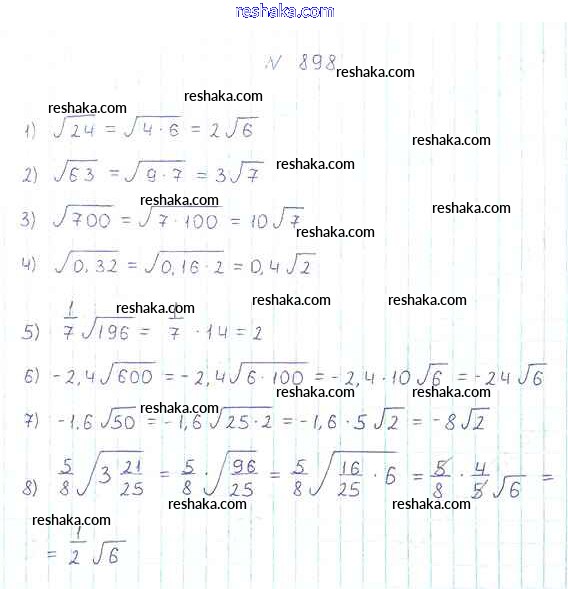 reshaka.com
N 898
reshaka.com
reshaka.com
reshaka.com
1) √24 = √4·6 = 2√6
reshaka.com
2) √63 = √9·7 = 3√7
reshaka.com
reshaka.com
reshaka.com
3) √700 = √7·100 = 10√7
reshaka.com
4) √0,32 = √0,16·2 = 0,4√2
reshaka.com
reshaka.com
reshaka.com
5) 1/7 √196 = 1/7 · 14 = 2
reshaka.com
6) -2,4√600 = -2,4√6·100 = -2,4·10√6 = -24√6
reshaka.com
reshaka.com
reshaka.com
7) -1.6√50 = -1,6√25·2 = -1,6·5√2 = -8√2
reshaka.com
8) 5/8 √3 21/25 = 5/8 · √96/25 = 5/8 √16/25 · 6 = 5/8 · 4/5 √6 =
reshaka.com
reshaka.com
reshaka.com
= 1/2 √6
reshaka.com